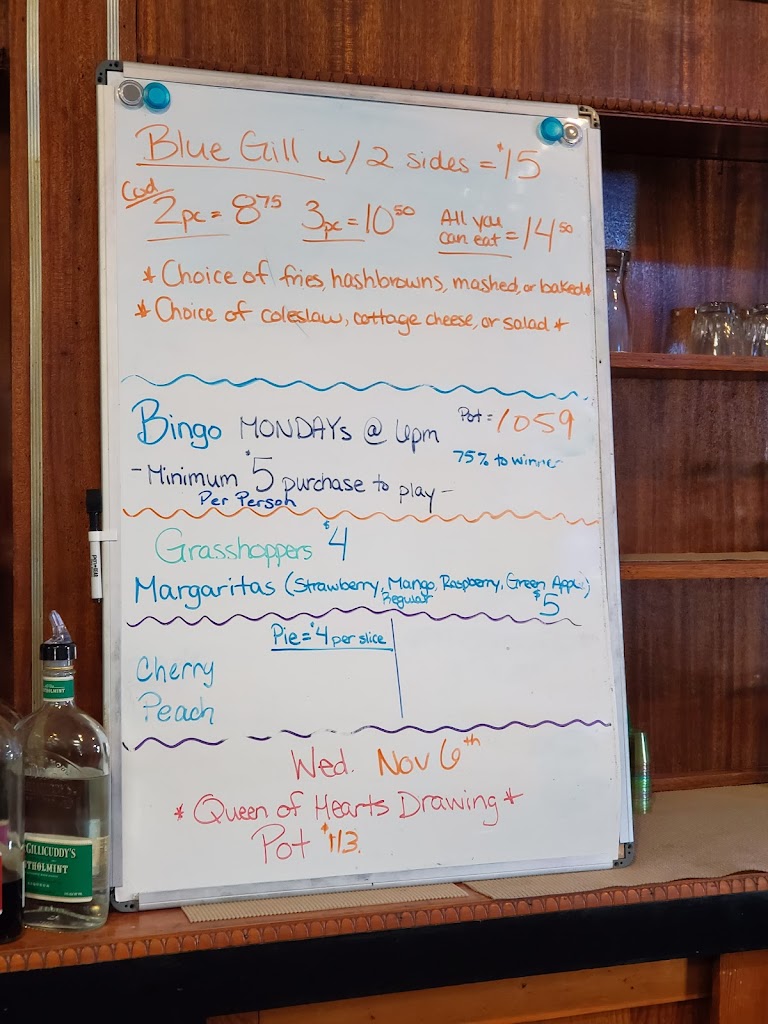 Blue Gill w/ 2 sides = $15
Cod
2pc = 8 75 3pc = 10 50 All you can eat = 14 50
* Choice of fries, hashbrowns, mashed, or baked *
* Choice of coleslaw, cottage cheese, or salad *
Bingo MONDAYs @ 6pm Pot = 1059
75% to winner
- Minimum $5 purchase to play -
Per Person
Grasshoppers $4
Margaritas (Strawberry, Mango, Raspberry, Green Apple)
Regular $5
Pie = $4 per slice
Cherry
Peach
Wed. Nov 6th
* Queen of Hearts Drawing *
Pot $113
GILLICUDDY'S
THOLMINT